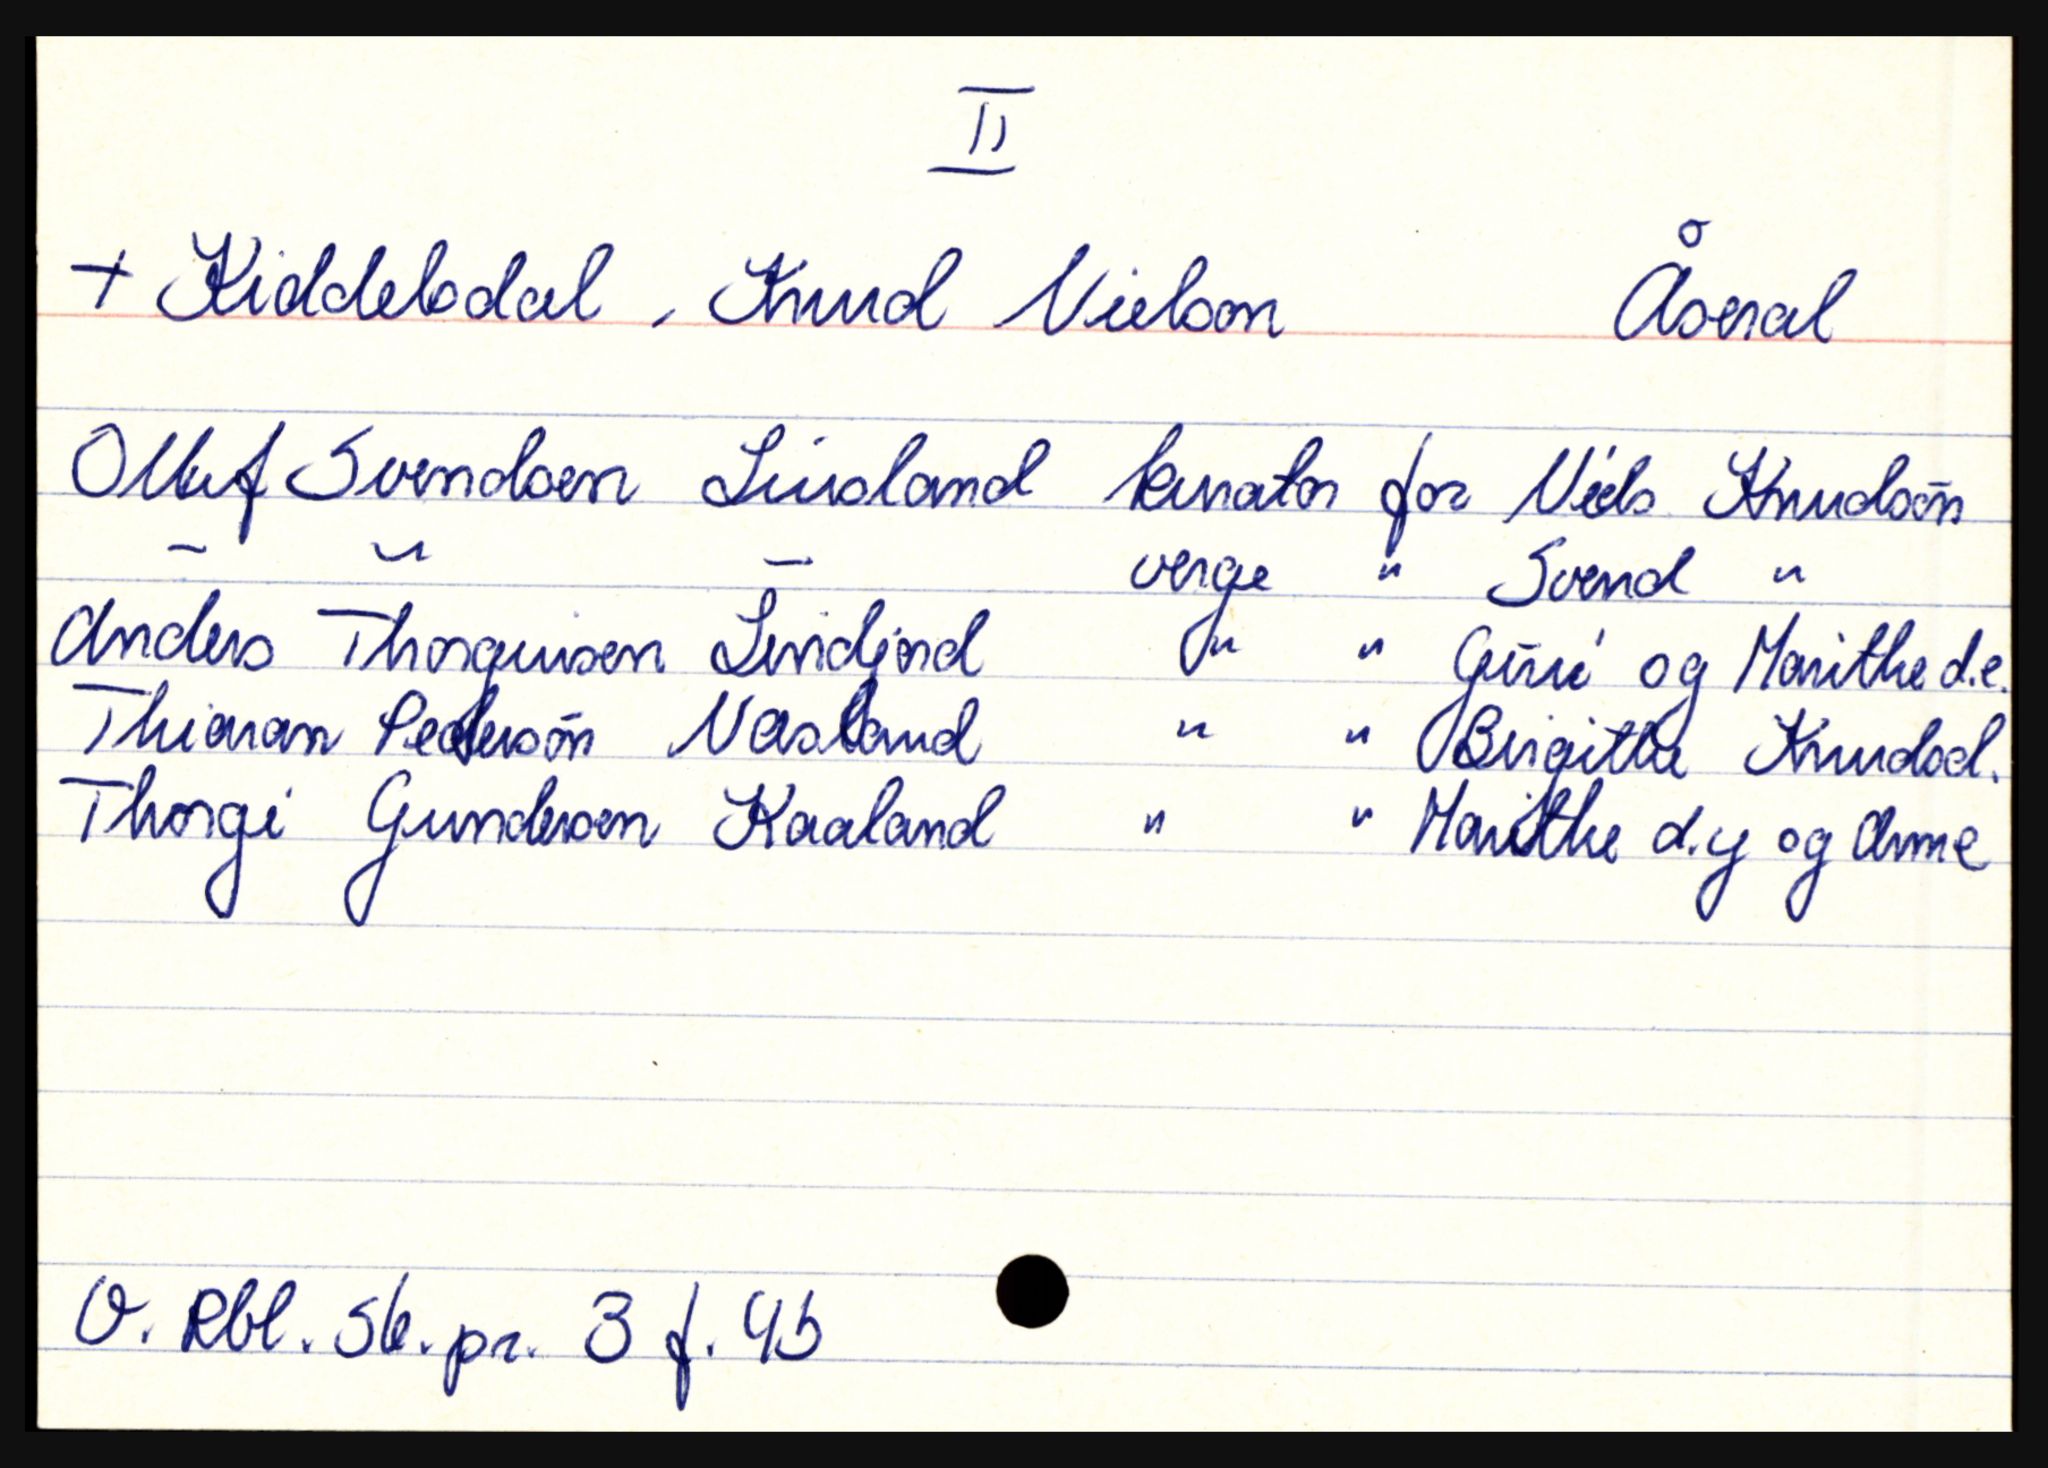 II
+ Kiddelsdal, Knud Nielson Åseral
Olluf Svendsen Liusland kurator for Niels Knudsön
– ~ – verge " Svend "
Anders Thorguisen Lindjord " " Guri og Marithe d.e.
Thiaran Pedersön Nasland " " Birgitte Knudsd.
Thorgi Gundersen Kaaland " " Marithe d.y og Anne
V. Rbl. sk. pr. 3 f. 45